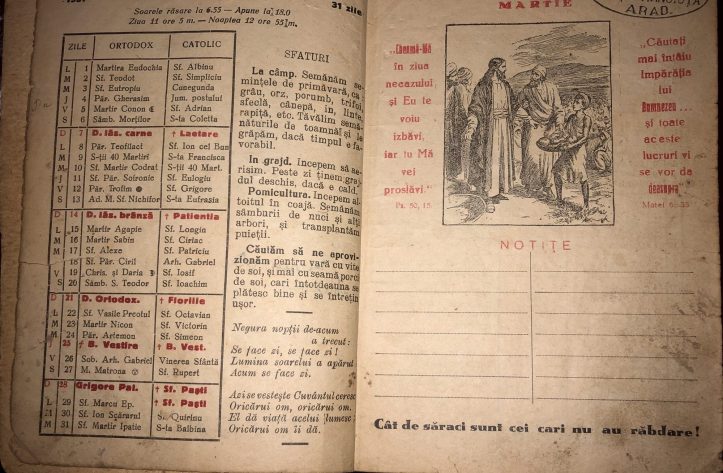 Soarele răsare la 6.55 — Apune la 18.0
31 zile
Ziua 11 ore 5 m. — Noaptea 12 ore 55 m.
ZILE ORTODOX CATOLIC
L 1 Martira Eudochia Sf. Albinu
M 2 Sf. Teodot Sf. Simpliciu
M 3 Sf. Eutropiu Cunegunda
J 4 Păr. Gherasim Jum. postului
V 5 Martir Conon Sf. Adrian
S 6 Sâmb. Morților S-ta Coletta
D 7 D. lăs. carne † Laetare
L 8 Păr. Teofilact Sf. Ion cel Bun
M 9 S-ții 40 Martiri S-ta Francisca
M 10 Sf. Martir Codrat S-ții 40 Mart.
J 11 Sf. Păr. Soironie Sf. Eulogiu
V 12 Păr. Teofim Sf. Grigore
S 13 Ad. M. Sf. Nichifor Sf. Eufrasia
D 14 D. lăs. brânză † Patientia
L 15 Martir Agapie Sf. Longin
M 16 Martir Sabin Sf. Ciriac
M 17 Sf. Alexe Sf. Patriciu
18 Sf. Păr. Ciril Arh. Gabriel
V 19 Chris. și Daria Sf. Iosif
S 20 Sâmb. S. Teodor Sf. Ioachim
D 21 D. Ortodox. † Floriile
L 22 Sf. Vasile Preotul Sf. Octavian
M 23 Martir Nicon Sf. Victorin
M 24 Păr. Artemon Sf. Simeon
J 25 † B. Vestire † B. Vest.
V 26 Sob. Arh. Gabriel Vinerea Sfântă
S 27 M. Matrona Sf. Rupert
D 28 Grigore Pal. † Sf. Paști
L 29 Sf. Marcu Ep. † Sf. Paști
30 Sf. Ion Scărarul S. Quirinu
M 31 Sf. Martir Ipatie S-ta Balbina
SFATURI
La câmp. Semănăm se-
mințele de primăvară, ca:
grâu, orz, porumb, trifoi,
sfeclă, cânepă, in, linte,
rapiță, etc. Tăvălim semă-
năturile de toamnă și le
grăpăm, dacă timpul e fa-
vorabil.
In grajd. Incepem să ae-
risim. Peste zi ținem graj-
dul deschis, dacă e cald.
Pomicultura. Incepem al-
toitul în coajă. Semănăm
sâmburii de nuci și alți
arbori, și transplantăm
puieții.
Căutăm să ne aprovi-
zionăm pentru vară cu vite
de soi, și mai cu seamă porci
de soi, cari întotdeauna se
plătesc bine și se întrețin
ușor.
Negura nopții de-acum
a trecut:
Se face zi, se face zi!
Lumina soarelui a apărut
Acum se face zi.
Azi se vestește Cuvântul ceresc
Oricărui om, oricărui om.
El dă viață acelui lumesc
Oricărui om îi dă.
MARTIE
ARAD.
„Cheamă-Mă
în ziua
necazului,
și Eu te
voiu
izbăvi,
iar tu Mă
vei
proslăvi.“
Ps. 50, 15.
„Căutați
mai întâiu
Împărăția
lui
Dumnezeu ...
și toate
aceste
lucruri vi
se vor da
deasupra“
Matei 6-33
NOTIȚE
Cât de săraci sunt cei cari nu au răbdare!